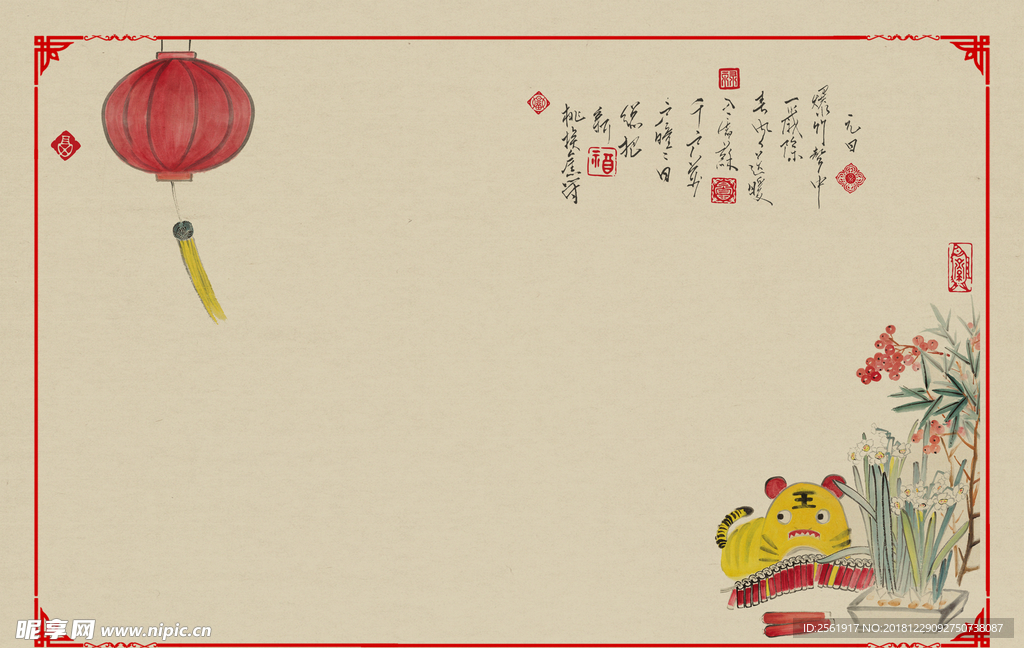 元日
爆竹声中
一岁除
春风送暖
入屠苏
千门万
户曈曈日
总把
新
桃换旧符
福
王
昵享网 www.nipic.cn
ID:2561917 NO:20181229092750738087